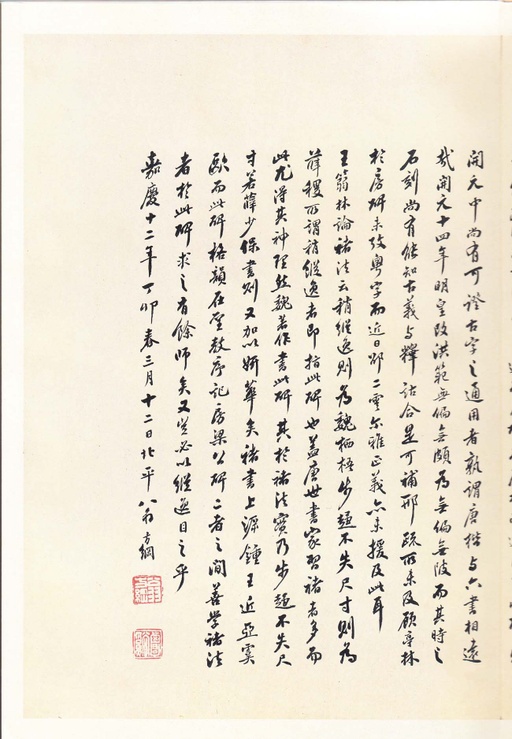 開元中尚有可證古字之通用者孰謂唐楷与六書相遠
哉開元十四年明皇改洪範無偏無頗為無偏無陂而其時之
石刻尚有能知古義与釋詁合是可補邢疏所未及顧亭林
於唐碑未致粵字而近日邵二雲尔雅正義亦未援及此耳
王篛林論褚法云稍縱逸則為魏栖梧步趨不失尺寸則為
薛稷所謂稍縱逸者即指此碑也蓋唐世書家習褚者多而
此尤得其神理然魏著作書此碑其於褚法實乃步趨不失尺
寸若薛少保書則又加以妍華矣褚書上源鍾王近亞虞
歐而此碑格韻在聖教序記房梁公碑二者之間善學褚法
者於此碑求之有餘師矣又豈必以縱逸目之乎
嘉慶十二年丁卯春三月十二日北平翁方綱